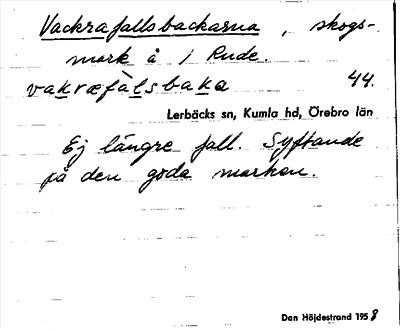 Vackrafallsbackarna, skogs-
mark å 1 Rude.
vakræfàlsbaka 44.
Lerbäcks sn, Kumla hd, Örebro län
Ej längre fall. Syftande
på den goda marken.
Dan Höjdestrand 1958